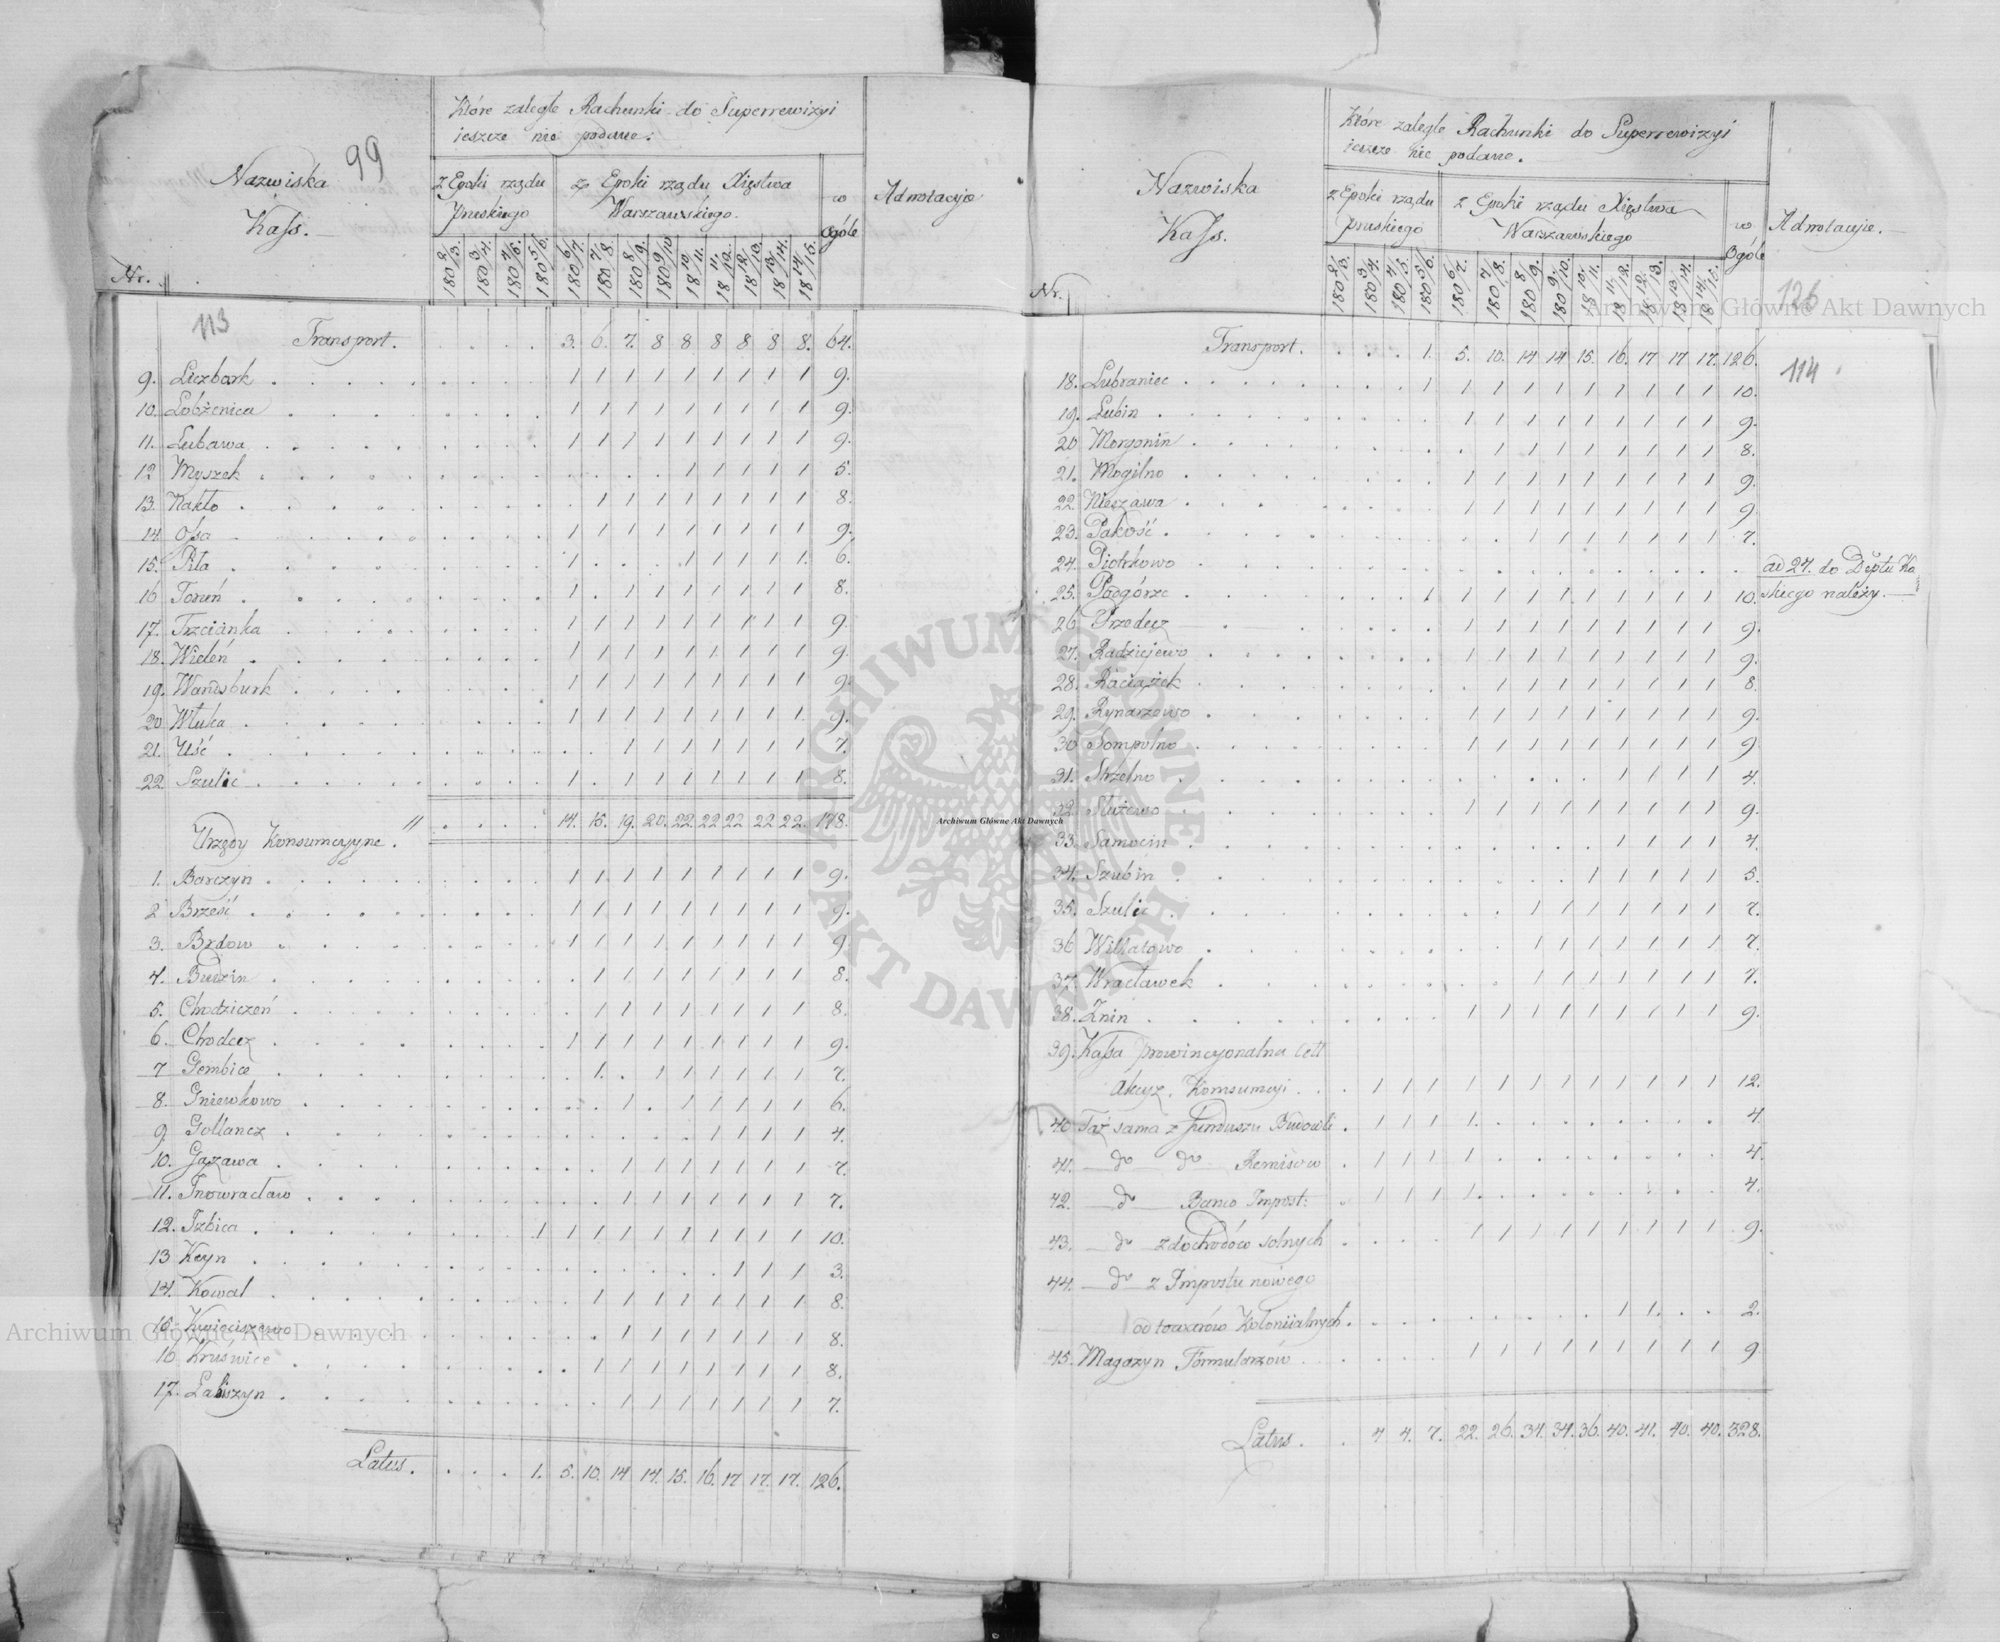 99
Nazwiska
Kass.
Nr.
Które zaległe Rachunki do Superrewizyi
ieszcze nie podane.
z Epoki rządu
Pruskiego
z Epoki rządu Xięstwa
Warszawskiego.
w
Ogóle
Adnotacyie
180 2/3. 180 3/4. 180 4/5. 180 5/6. 180 6/7. 180 7/8. 180 8/9. 180 9/10 18 10/11. 18 11/12. 18 12/13. 18 13/14. 18 14/15.
113
Transport. . . . . 3. 6. 7. 8 8 8 8 8 8. 64.
9. Liczbark 1 1 1 1 1 1 1 1 1 9.
10. Łobżenica 1 1 1 1 1 1 1 1 1 9.
11. Lubawa 1 1 1 1 1 1 1 1 1 9.
12 Myszek 1 1 1 1 1 5.
13. Nakło 1 1 1 1 1 1 1 1 8.
14 Ossa 1 1 1 1 1 1 1 1 1 9.
15. Piła 1 . . . 1 1 1 1 1. 6.
16 Toruń 1 . 1 1 1 1 1 1 1 8.
17. Trzcianka 1 1 1 1 1 1 1 1 1 9.
18. Wieleń 1 1 1 1 1 1 1 1 1 9.
19. Wandsburk 1 1 1 1 1 1 1 1 1 9.
20 Wtuka 1 1 1 1 1 1 1 1 1 9.
21. Uść 1 1 1 1 1 1 1 7.
22 Szulic 1 . 1 1 1 1 1 1 1 8.
. . . . 14. 15. 19. 20. 22. 22 22 22 22. 178.
Urzędy Konsumcyyne.
1. Barczyn 1 1 1 1 1 1 1 1 1 9.
2 Brześć 1 1 1 1 1 1 1 1 1 9.
3. Brdow 1 1 1 1 1 1 1 1 1 9.
4. Budzin 1 1 1 1 1 1 1 1 8.
5. Chodziczeń 1 1 1 1 1 1 1 1 8.
6. Chodecz 1 1 1 1 1 1 1 1 1 9.
7 Gembice 1. . 1 1 1 1 1 1 7.
8. Gniewkowo 1 . 1 1 1 1 1 6.
9 Gollancz 1 1 1 1 4.
10. Gązawa 1 1 1 1 1 1 1 7.
11. Inowracław 1 1 1 1 1 1 1 7.
12. Izbica 1 1 1 1 1 1 1 1 1 1 10.
13 Keyn 1 1 1 3.
14. Kowal 1 1 1 1 1 1 1 1 8.
15. Kwieciszewo 1 1 1 1 1 1 1 8.
16 Kruświce 1 1 1 1 1 1 1 1 8.
17. Łabiszyn 1 1 1 1 1 1 1 7.
Latus. . . . 1. 5. 10. 14 14. 15. 16. 17 17. 17. 126.
Nazwiska
Kass.
Nr.
Które zaległe Rachunki do Superrewizyi
ieszcze nie podane.
z Epoki rządu
pruskiego
z Epoki rządu Xięstwa
Warszawskiego
w
Ogóle
Adnotacyie.
180 2/3. 180 3/4. 180 4/5. 180 5/6. 180 6/7. 180 7/8. 180 8/9. 180 9/10. 18 10/11. 18 11/12. 18 12/13. 18 13/14. 18 14/15.
126
114
Transport. . . . 1. 5. 10. 14 14 15. 16. 17 17 17. 126.
18. Lubraniec 1 1 1 1 1 1 1 1 1 1 10.
19. Lubin 1 1 1 1 1 1 1 1 1 9.
20 Morgonin 1 1 1 1 1 1 1 1 8.
21. Mogilno 1 1 1 1 1 1 1 1 1 9.
22. Nieszawa 1 1 1 1 1 1 1 1 1 9.
23. Pakość 1 1 1 1 1 1 1 7.
24. Piotrkowo
ad 24. do Deptu Ka
liskiego należy.
25. Podgórze 1 1 1 1 1 1 1 1 1 1 10.
26. Przedecz 1 1 1 1 1 1 1 1 1 9.
27. Radziejewo 1 1 1 1 1 1 1 1 1 9.
28. Raciążek 1 1 1 1 1 1 1 1 8.
29. Rynarzewo 1 1 1 1 1 1 1 1 1 9.
30 Sompolno 1 1 1 1 1 1 1 1 1 9.
31. Strzelno 1 1 1 1 4.
32. Służewo 1 1 1 1 1 1 1 1 1 9.
33. Samocin 1 1 1 1 4.
34. Szubin 1 1 1 1 1 5.
35. Szulic 1 1 1 1 1 1 1 7.
36 Willatowo 1 1 1 1 1 1 1 7.
37. Wracławek 1 1 1 1 1 1 1 7.
38. Znin 1 1 1 1 1 1 1 1 1 9.
39. Kassa prowincyonalna Cell
Akcyz. Komsumcyi 1 1 1 1 1 1 1 1 1 1 1 1 12.
40 Taż sama z funduszu Budowli . 1 1 1 1. 4
41. do do Remisow . 1 1 1 1 4.
42. do Banco Impost: 1 1 1 1. 4.
43. do z dochodów solnych 1 1 1 1 1 1 1 1 1 9.
44. do z Impostu nowego
od towarów Kolonijalnych. 1 1. . . 2.
45. Magazyn Formularzów 1 1 1 1 1 1 1 1 1 9
Latus. . 4 4. 7. 22. 26. 34. 34. 36. 40. 41. 40. 40. 328.
ARCHIWUM GŁÓWNE
AKT DAWNYCH
Archiwum Główne Akt Dawnych
Archiwum Główne Akt Dawnych
Archiwum Główne Akt Dawnych